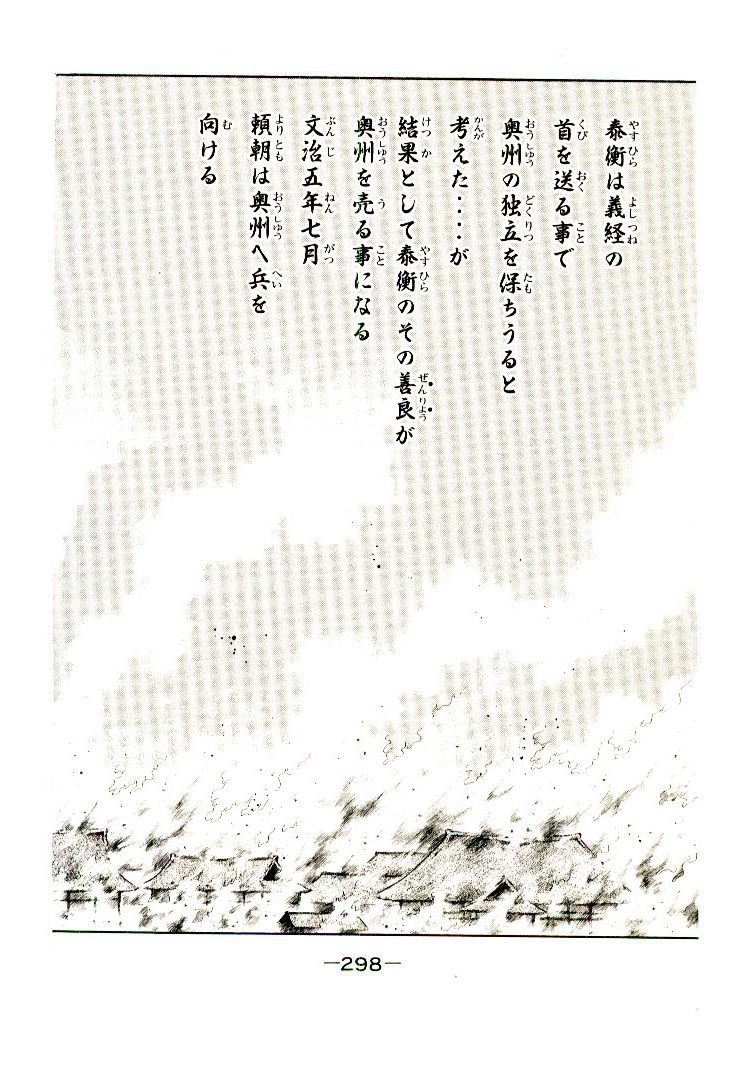 泰衡は義経の
首を送る事で
奥州の独立を保ちうると
考えた‥‥が
結果として泰衡のその善良が
奥州を売る事になる
文治五年七月
頼朝は奥州へ兵を
向ける
—298—